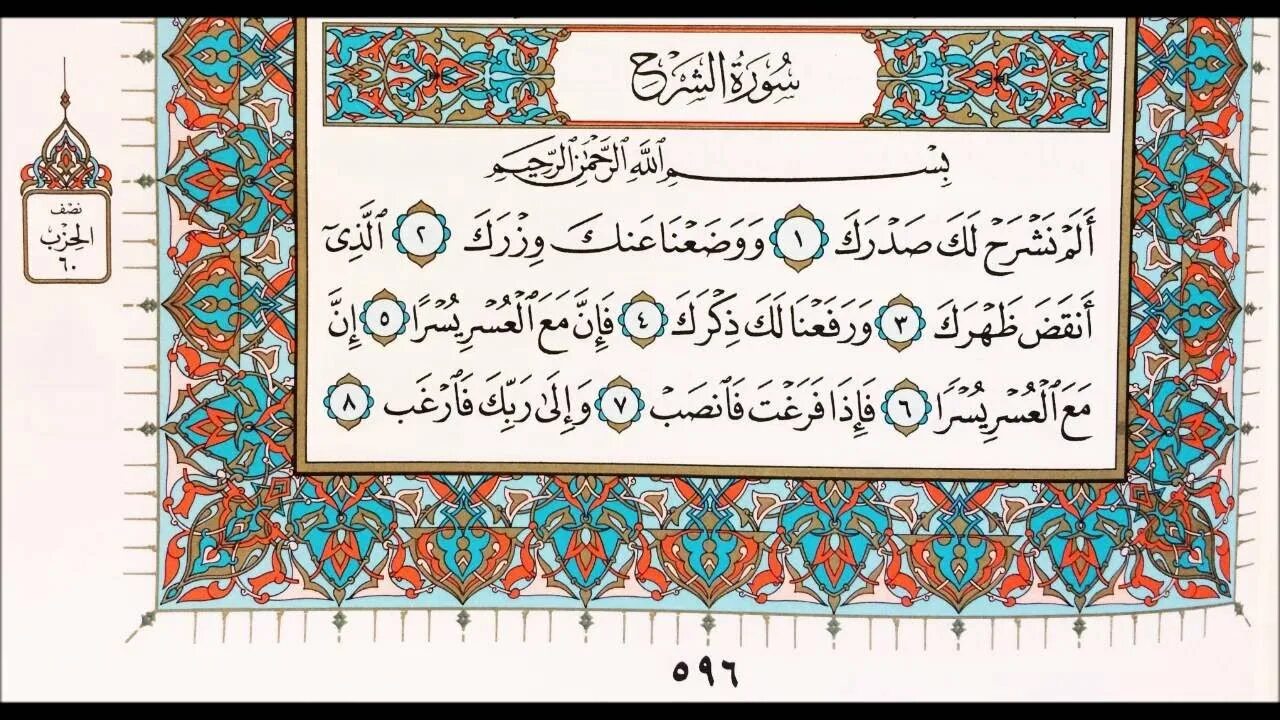 سُورَةُ الشَّرْحِ
بِسْمِ ٱللَّهِ ٱلرَّحْمَٰنِ ٱلرَّحِيمِ
أَلَمْ نَشْرَحْ لَكَ صَدْرَكَ ١ وَوَضَعْنَا عَنكَ وِزْرَكَ ٢ ٱلَّذِىٓ
أَنقَضَ ظَهْرَكَ ٣ وَرَفَعْنَا لَكَ ذِكْرَكَ ٤ فَإِنَّ مَعَ ٱلْعُسْرِ يُسْرًا ٥ إِنَّ
مَعَ ٱلْعُسْرِ يُسْرًا ٦ فَإِذَا فَرَغْتَ فَٱنصَبْ ٧ وَإِلَىٰ رَبِّكَ فَٱرْغَب ٨
نصْف
الحِزْبْ
٦٠
٥٩٦